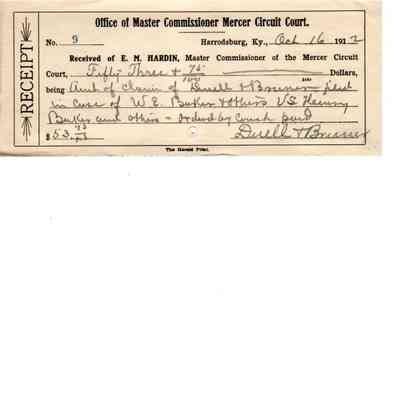 Office of Master Commissioner Mercer Circuit Court.
No. 9 Harrodsburg, Ky., Oct 16 1912
Received of E. M. HARDIN, Master Commissioner of the Mercer Circuit
Court, Fifty Three + 75/100 Dollars,
being Amt of claim of & filed
in case of W. E. Baker & others VS Henry
Baker and others - ordered by court paid
$53.75/100
RECEIPT
The Herald Print.